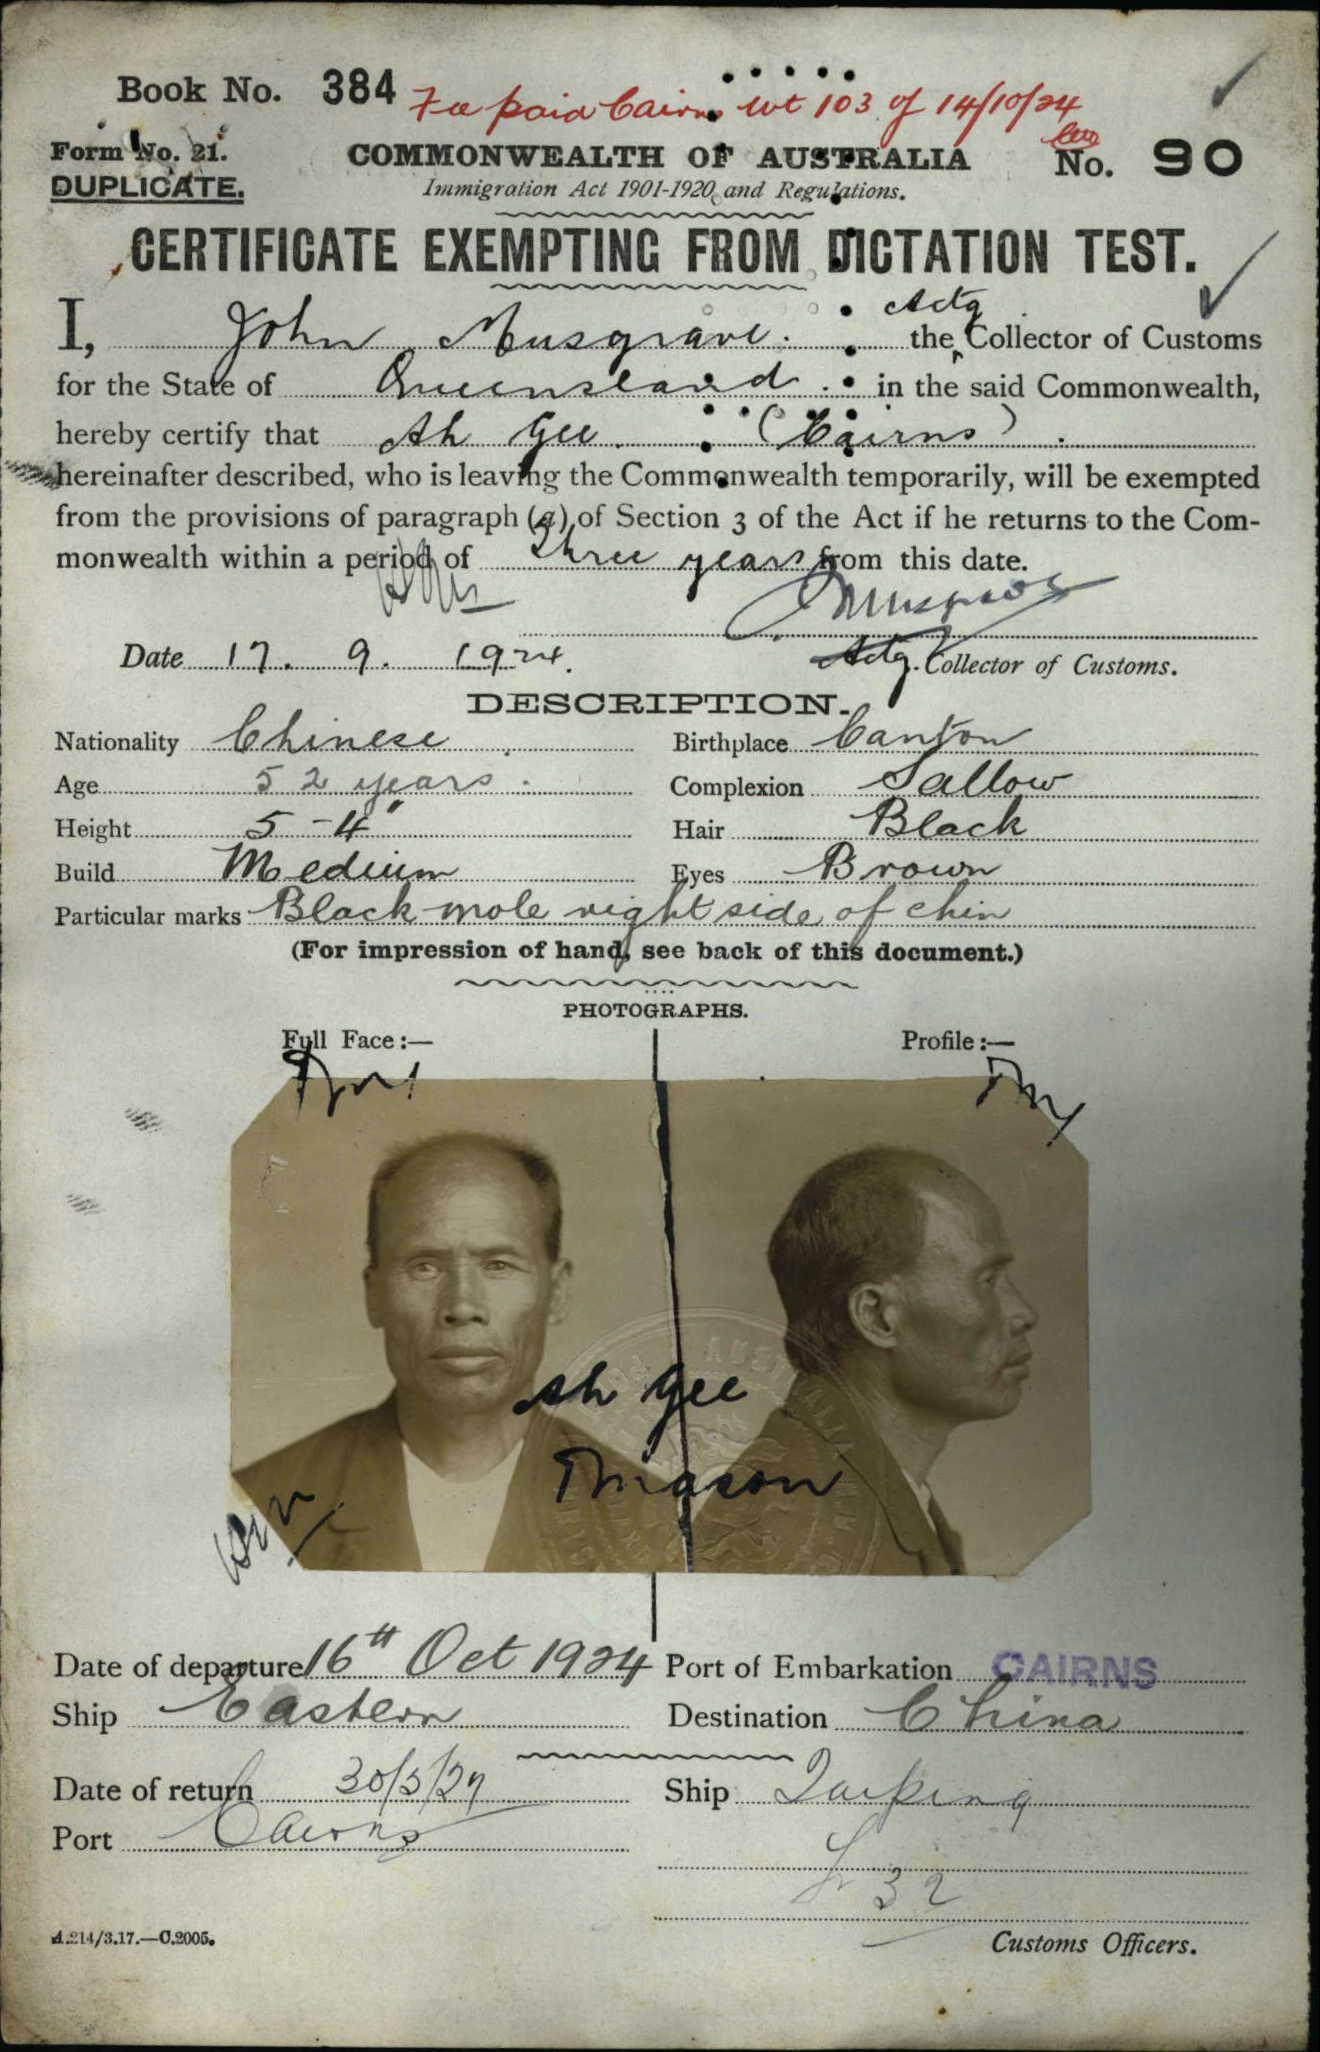 Book No. 384 Fee paid Cairns wt 103 of 14/10/24
Form No. 21. COMMONWEALTH OF AUSTRALIA No. 90
DUPLICATE. Immigration Act 1901-1920 and Regulations.
CERTIFICATE EXEMPTING FROM DICTATION TEST.
I, John Musgrave. the Actg Collector of Customs
for the State of Queensland. in the said Commonwealth,
hereby certify that Ah Gee. (Cairns).
hereinafter described, who is leaving the Commonwealth temporarily, will be exempted
from the provisions of paragraph (a) of Section 3 of the Act if he returns to the Com-
monwealth within a period of three years from this date.
J Musgrave
Date 17. 9. 1924. Actg. Collector of Customs.
DESCRIPTION.
Nationality Chinese Birthplace Canton
Age 52 years. Complexion Sallow
Height 5-4" Hair Black
Build Medium Eyes Brown
Particular marks Black mole right side of chin
(For impression of hand, see back of this document.)
PHOTOGRAPHS.
Full Face:— Profile:—
Ah Gee
Date of departure 16th Oct 1924 Port of Embarkation CAIRNS
Ship Eastern Destination China
Date of return 30/3/27 Ship Taiping
Port Cairns
32
A.214/3.17.—C.2005. Customs Officers.